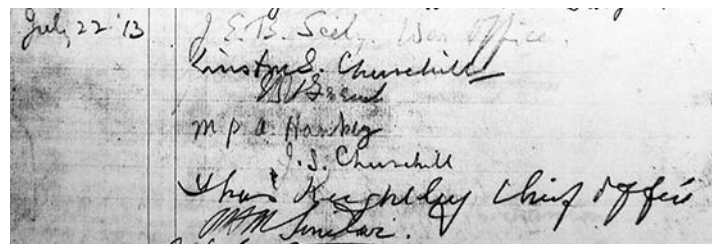 July 22 '13 J. E. B. Seely. War Office.
Winston S. Churchill
M P A Hankey
J. S. Churchill
Thos Keighley Chief Officer
Sinclair.